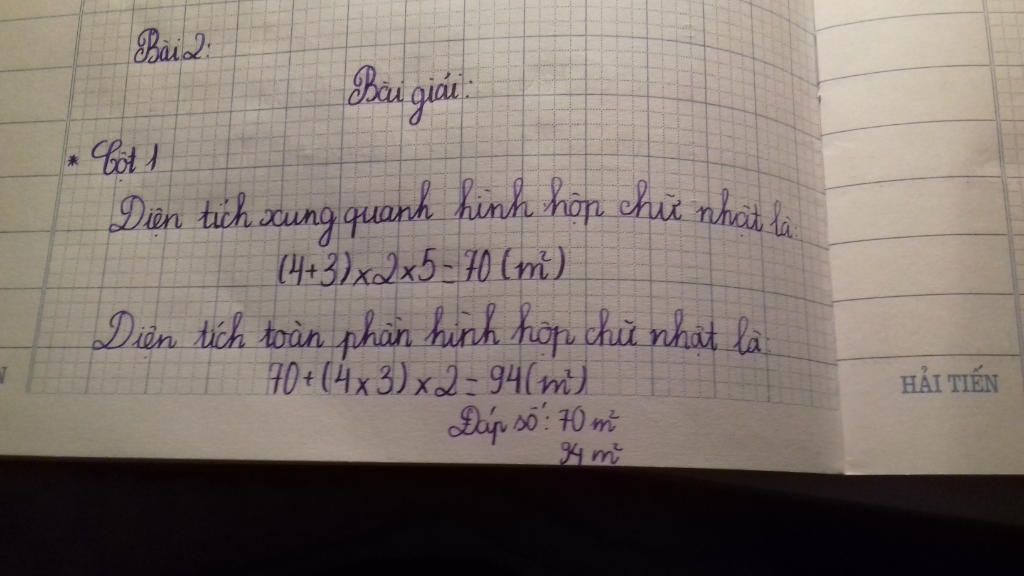 Bài 2:
Bài giải:
* Cột 1
Diện tích xung quanh hình hộp chữ nhật là:
(4+3)×2×5=70(m²)
Diện tích toàn phần hình hộp chữ nhật là:
70+(4×3)×2=94(m²)
HẢI TIẾN
Đáp số: 70 m²
94 m²